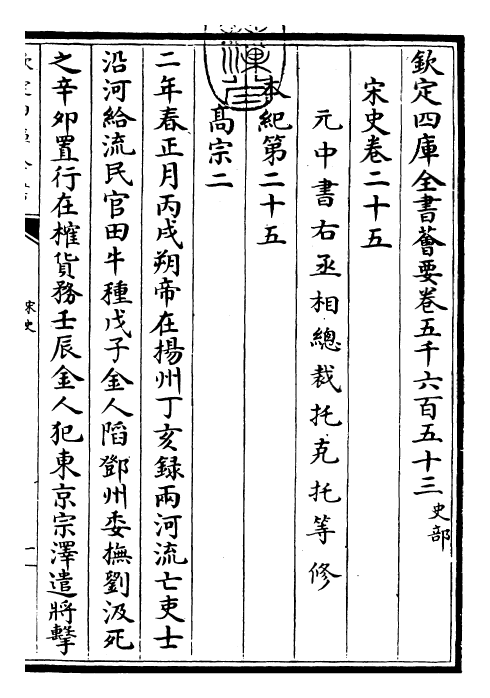 欽定四庫全書薈要卷五千六百五十三 史部
宋史卷二十五
元中書右丞相總裁托克托等修
本紀第二十五
高宗二
二年春正月丙戌朔帝在揚州丁亥録兩河流亡吏士
沿河給流民官田牛種戊子金人陷鄧州安撫劉汲死
之辛卯置行在榷貨務壬辰金人犯東京宗澤遣將擊
宋史